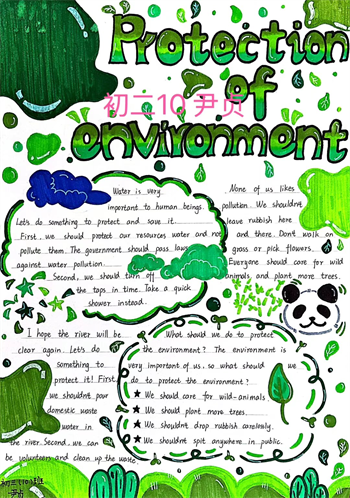 Protection
of
environment
初二10 尹贝
Water is very
important to human beings.
Let's do something to protect and save it.
First, we should protect our resources water and not
pollute them. The government should pass laws
against water pollution.
Second, we should turn off
the taps in time. Take a quick
shower instead.
None of us likes
pollution. We shouldn't
leave rubbish here
and there. Don't walk on
grass or pick flowers.
Everyone should care for wild
animals and plant more trees.
I hope the river will be
clear again. Let's do
something to
protect it! First,
we shouldn't pour
domestic waste
water in
the river. Second, we can
be volunteers and clean up the waste.
What should we do to protect
the environment? The environment is
very important of us. so what should we
do to protect the environment?
★ We should care for wild-animals.
★ We should plant more trees.
★ We shouldn't drop rubbish carelessly.
★ We shouldn't spit anywhere in public.